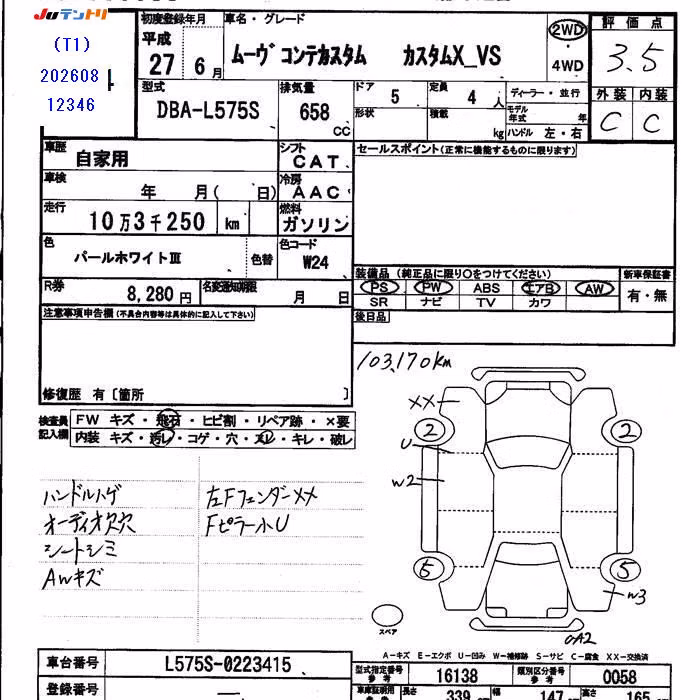 Juテントリ
(T1)
202608
12346
初度登録年月
平成
27年 6月
車名・グレード
ムーヴ コンテカスタム カスタムX_VS
2WD
4WD
評価点
3.5
外装 内装
C C
型式
DBA-L575S
排気量
658 CC
ドア
5
定員
4人
形状
積載
kg
ディーラー・並行
モデル年式 年
ハンドル 左・右
車歴
自家用
シフト
CAT
セールスポイント(正常に機能するものに限ります)
車検
年 月( 日)
冷房
AAC
走行
10万3千250 km
燃料
ガソリン
色
パールホワイトⅢ
色替
色コード
W24
装備品(純正品に限り○をつけてください)
新車保証書
PS PW ABS エアB AW
有・無
SR ナビ TV カワ
R券
8,280円
名変通知期限
月 日
後日品
注意事項申告欄(不具合内容等は具体的に記入して下さい)
修復歴 有〔箇所 〕
103,170km
検査員記入欄
FW キズ・飛石・ヒビ割・リペア跡・×要
内装 キズ・汚レ・コゲ・穴・スレ・キレ・破レ
XX
2
2
U
W2
5
5
W3
ハンドルハゲ
左FフェンダーXX
オーディオ欠穴
Fピラー小U
シートシミ
AWキズ
スペア
A2
A-キズ E-エクボ U-凹み W-補修跡 S-サビ C-腐食 XX-交換済
車台番号
L575S-0223415
型式指定番号 参考
16138
類別区分番号 参考
0058
登録番号
長さ 339 cm
幅 147 cm
高さ 165 cm